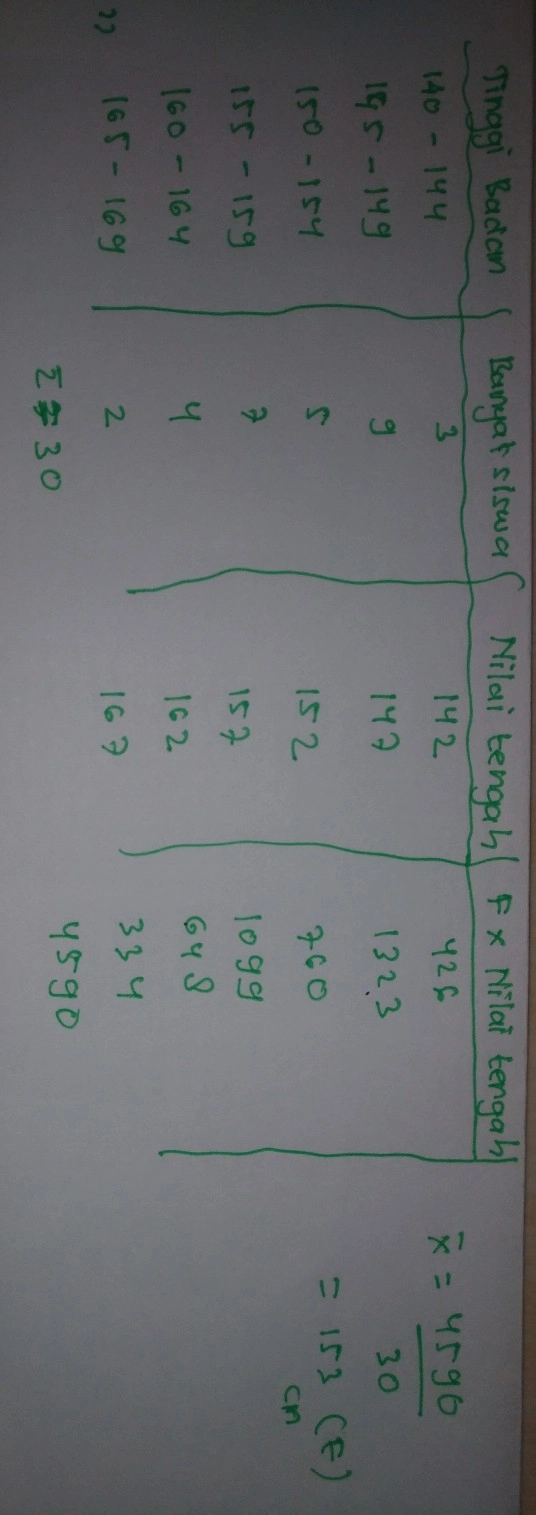 Tinggi Badan Banyak siswa Nilai tengah F x Nilai tengah
140 - 144 3 142 426
145 - 149 9 147 1323
150 - 154 5 152 760
155 - 159 7 157 1099
160 - 164 4 162 648
165 - 169 2 167 334
Σ = 30 4590
x̄ = 4590
30
= 153 (E)
cm